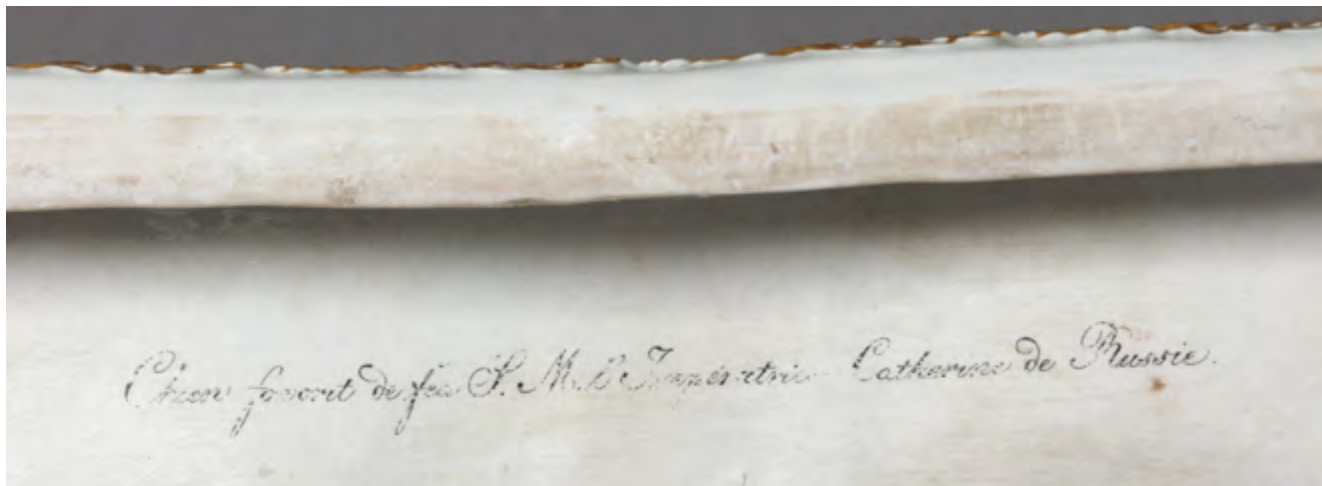 Chien favorit de feu S. M. L'Impératrice Catherine de Russie.